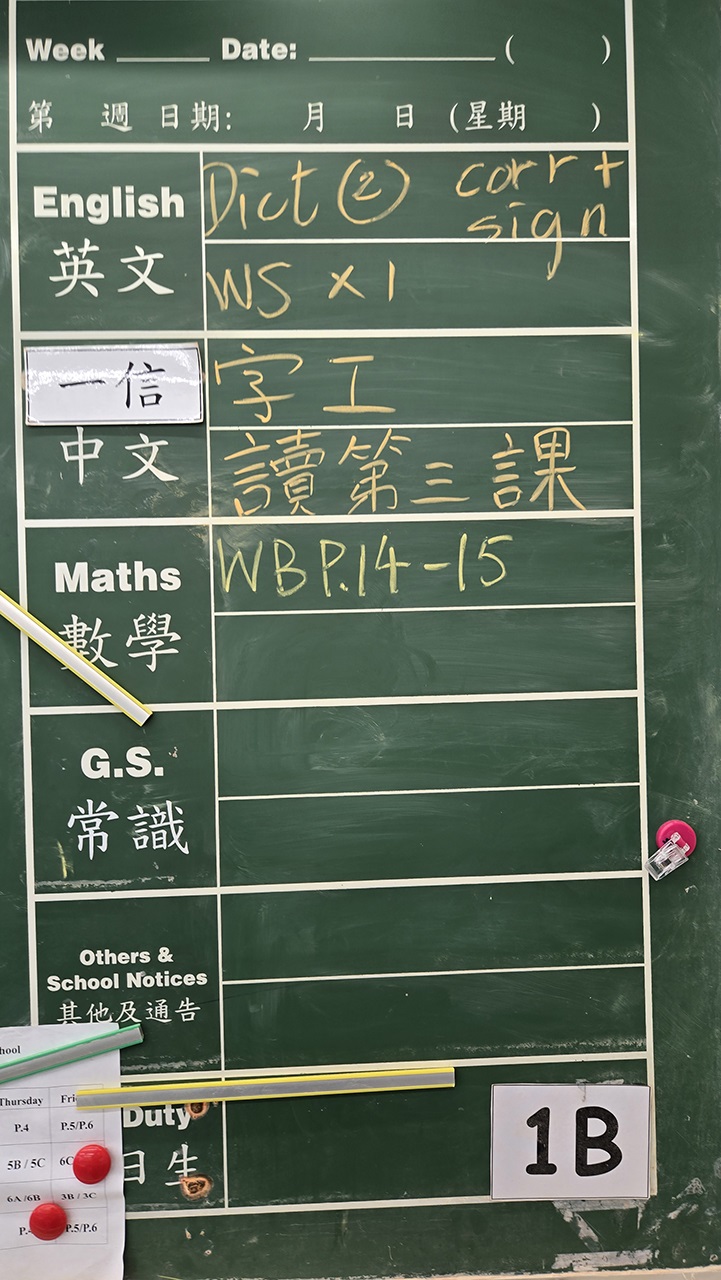 Week ______ Date: ____________ ( )
第 週 日期: 月 日 (星期 )
English
英文
Dict ② corr +
sign
WS × 1
一信
中文
字工
讀第三課
Maths
數學
WB P.14-15
G.S.
常識
Others &
School Notices
其他及通告
hool
Thursday Fri
P.4 P.5/P.6
5B / 5C 6C
6A /6B 3B / 3C
P. P.5/P.6
Duty
日生
1B